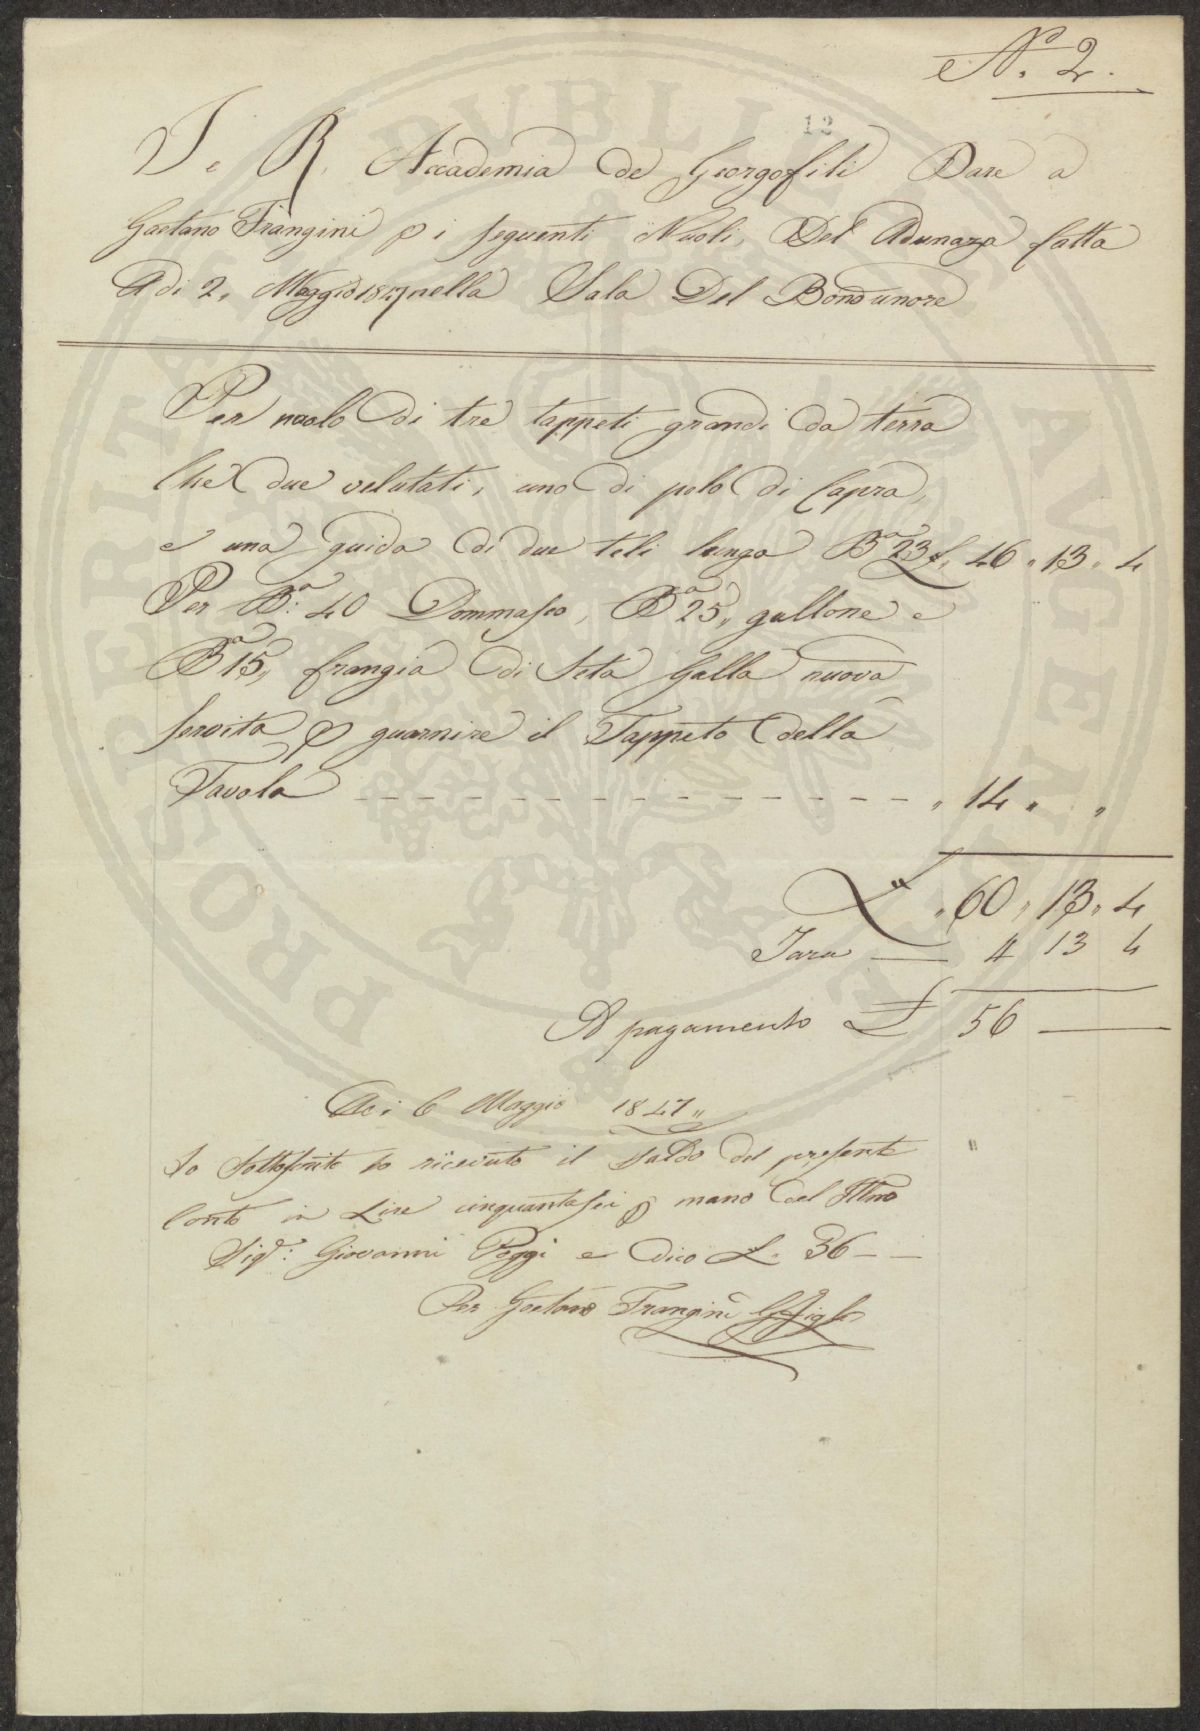 N.º 2.
12
I. e R. Accademia de Georgofili Dare a
Gaetano Frangini p i seguenti Nuoli, Del Adunaza fatta
A di 2, Maggio 1847 nella Sala Del Bondumore
Per nuolo di tre tappeti grandi da terra
Che due velutati, uno di pelo di Capra,
e una guida di due teli lunga Ba 23 £ 46 " 13 " 4
Per Ba: 40 Dommasco, Ba 25,, gallone e
Ba 15,, frangia di Seta Galla nuova
servita p guarnire il Tappeto della
Tavola " 14 " "
£ " 60 " 13 " 4
Tara — 4 13 4
A pagamento £ 56 —
Adi 6 Maggio 1847 "
Io Sottoscritto ho ricevuto il saldo del presente
Conto in Lire cinquantasei p mano del Illmo
Sigr: Giovanni Poggi e dico £. 56 — —
Per Gaetano Frangini
PVBLICAE AVGENDAE PROSPERITATI